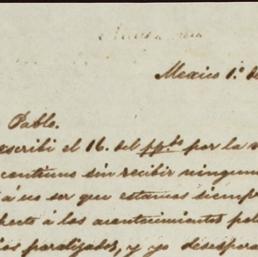 Mexico 1.º de
Pablo.
escribi el 16. del pp.do por la v
continuo sin recibir ningun
á no ser que estamos siemp
á los acontecimientos pol
paralizados, y yo desespera